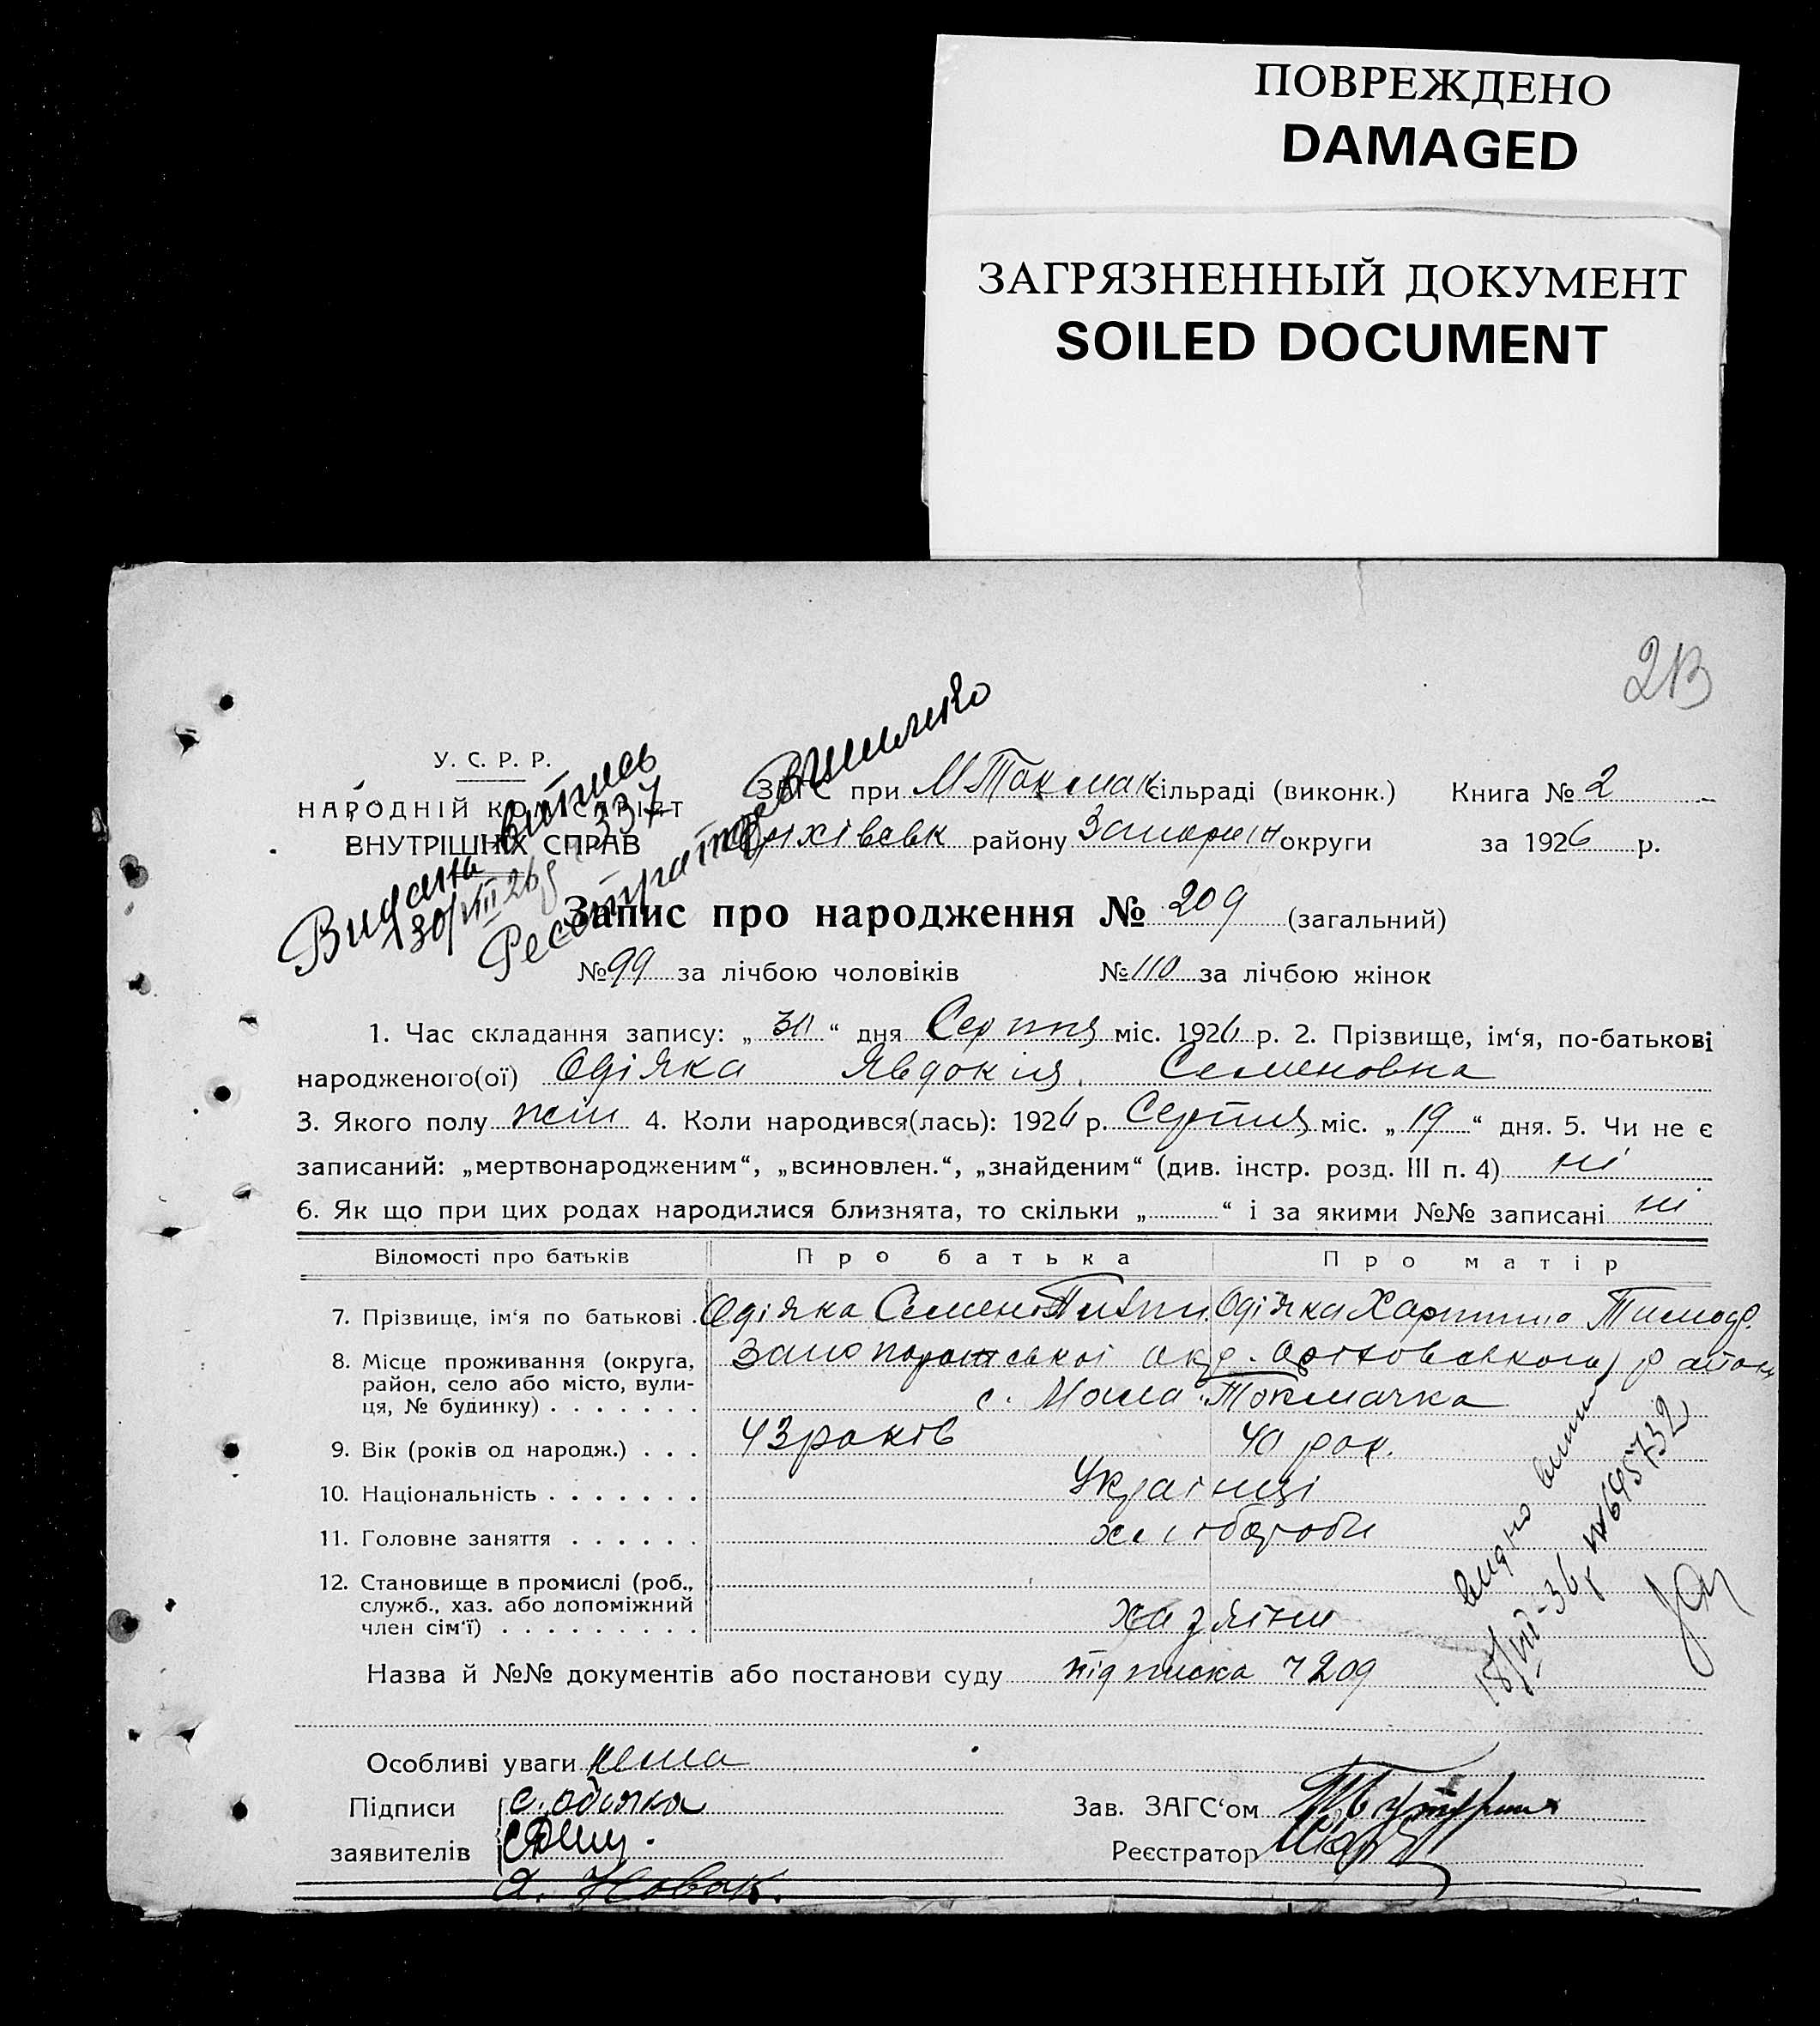 ПОВРЕЖДЕНО
DAMAGED
ЗАГРЯЗНЕННЫЙ ДОКУМЕНТ
SOILED DOCUMENT
213
У. С. Р. Р.
НАРОДНІЙ КОМІСАРІЯТ
ВНУТРІШНІХ СПРАВ
Видань витпись
30/VIII 26 р 337
ЗАГС при М Токмак сільраді (виконк.) Книга № 2
Оріхівськ району Запоріж округи за 1926 р.
Запис про народження № 209 (загальний)
№ 99 за лічбою чоловіків № 110 за лічбою жінок
1. Час складання запису: „ 30 “ дня Серпня міс. 1926 р. 2. Прізвище, ім‘я, по-батькові
народженого(ої) Одіяка Явдокія Семеновна
3. Якого полу жін 4. Коли народився(лась): 1926 р. Серпня міс. „ 19 “ дня. 5. Чи не є
записаний: „мертвонародженим“, „всиновлен.“, „знайденим“ (див. інстр. розд. III п. 4) ні
6. Як що при цих родах народилися близнята, то скільки „ “ і за якими №№ записані ні
Відомості про батьків Про батька Про матір
7. Прізвище, ім‘я по батькові Одіяка Семен Одіяка Хартина Тимоф.
8. Місце проживання (округа, район, село або місто, вулиця, № будинку) Запорожської окр. Оріховського району
с. Мала Токмачка
9. Вік (років од народж.) 43 років 40 рок.
10. Національність Українці
11. Головне заняття хлібороби
12. Становище в промислі (роб., служб., хаз. або допоміжний член сім‘ї) хазяїни
Назва й №№ документів або постанови суду підписка ч 209
видно
18/VII-36 р №695732
Особливі уваги нема
Підписи С. Одіяка Зав. ЗАГС‘ом
заявителів Реєстратор
Новак.